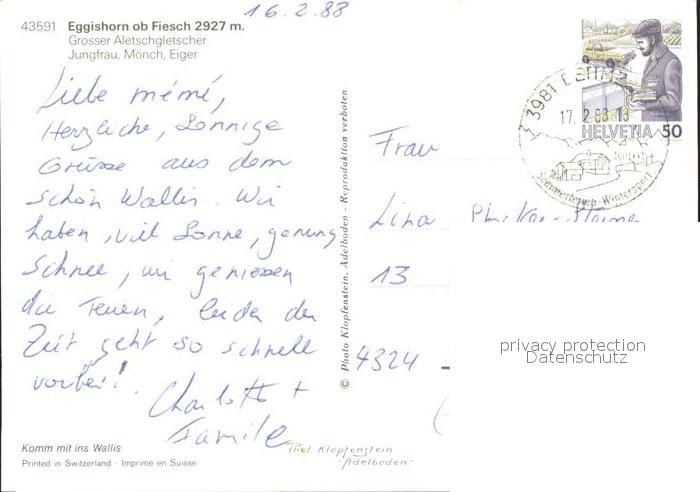 16.2.88
43591 Eggishorn ob Fiesch 2927 m.
Grosser Aletschgletscher
Jungfrau, Mönch, Eiger
Liebe mémé,
Herzliche, Sonnige
Grüsse aus dem
schön Wallis. Wir
haben, viel Sonne, genung
Schnee, wir geniessen
die Ferien, leider der
Zeit geht so schnell
vorbei!
Charlotte +
Familie
Komm mit ins Wallis
Printed in Switzerland · Imprimé en Suisse
© Photo Klopfenstein, Adelboden - Reproduktion verboten
Phot. Klopfenstein
"Adelboden"
3981
17.2.88 13
Sommerferien - Wintersport
HELVETIA 50
Frau
Lina
13
4324
privacy protection
Datenschutz